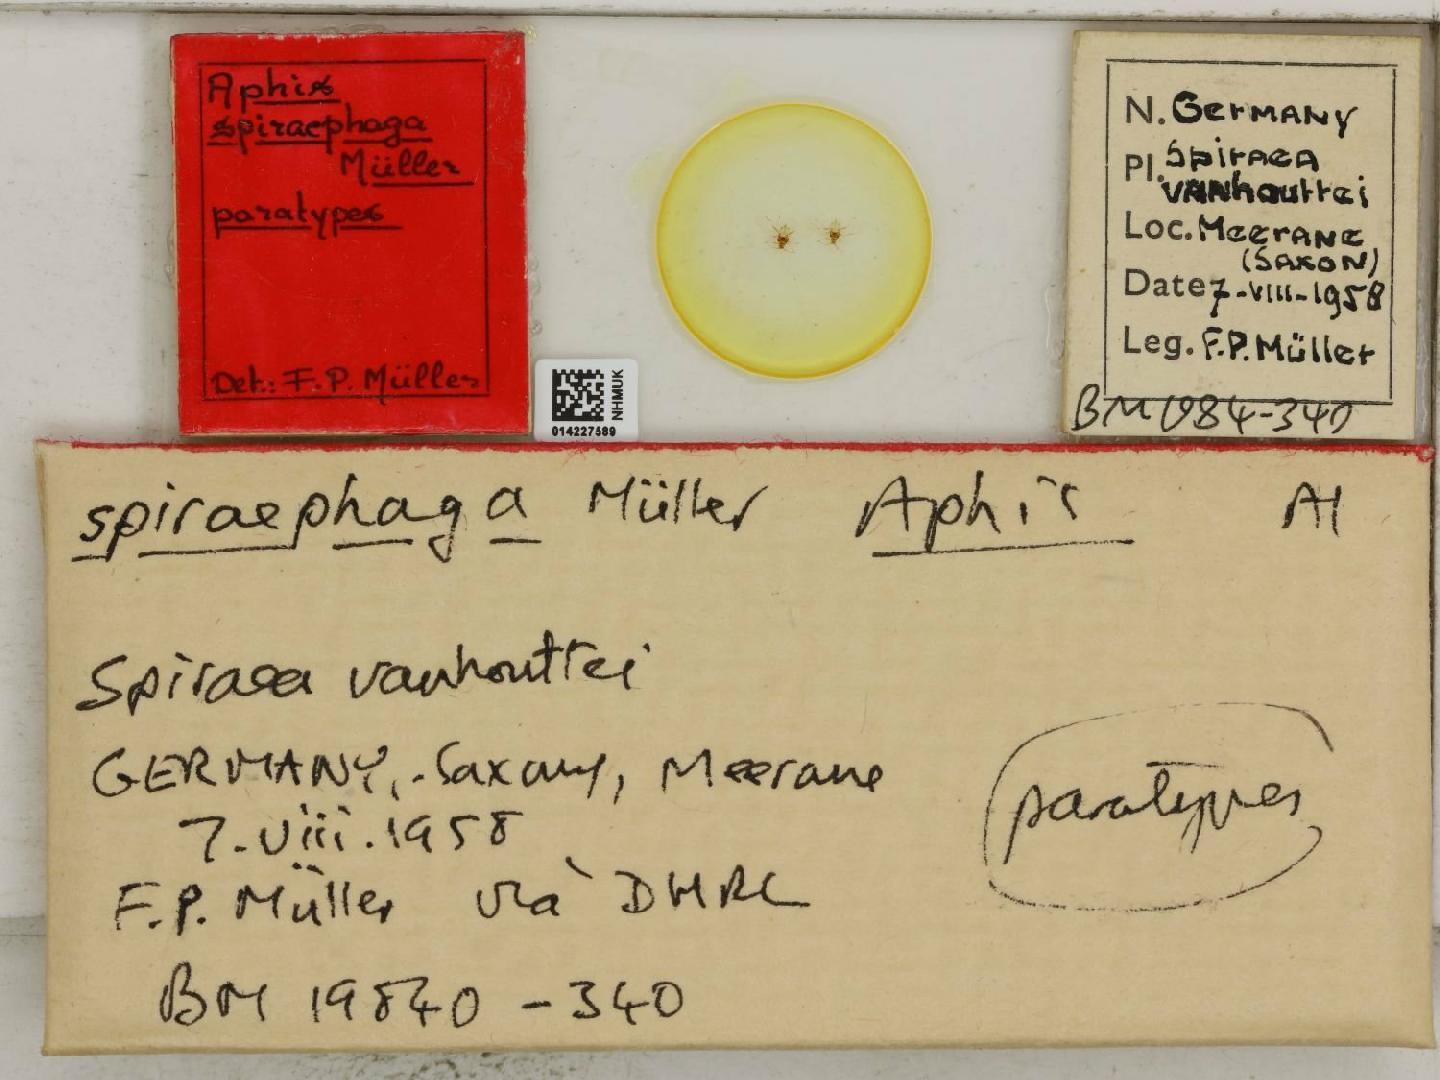 Aphis
spiraephaga
Müller
paratypes
Det.: F. P. Müller
NHMUK
014227589
N. Germany
Pl. Spiraea
vanhouttei
Loc. Meerane
(Saxon)
Date 7-VIII-1958
Leg. F.P. Müller
BM 1984-340
spiraephaga Müller Aphis A1
Spiraea vanhouttei
GERMANY, Saxony, Meerane
7.viii.1958
paratypes
F.P. Müller via DHRL
BM 19840 - 340